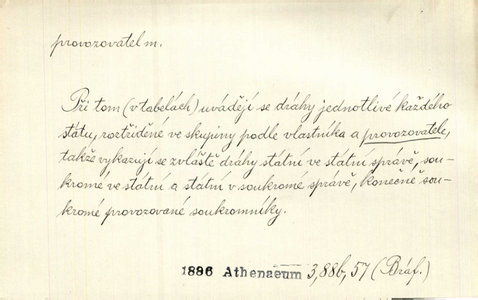 provozovatel m.
Při tom (v tabelách) uvádějí se dráhy jednotlivé každého
státu, roztříděné ve skupiny podle vlastníka a provozovatele,
takže vykazují se zvláště dráhy státní ve státní správě, sou-
kromé ve státní a státní v soukromé správě, konečně sou-
kromé provozované soukromníky.
1886 Athenaeum 3,88b,57 (Bráf.)